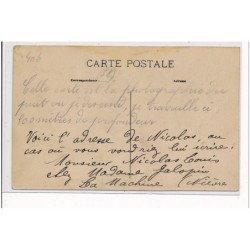 CARTE POSTALE
Correspondance Adresse
Cette carte est la photographie du
puit où je descend, je travaille à
mètres de profondeur
Voici l'adresse de Nicolas, au
cas où vous voudriez lui écrire:
Monsieur Nicolas Louis
chez Madame Galopin
La Machine (Nièvre)